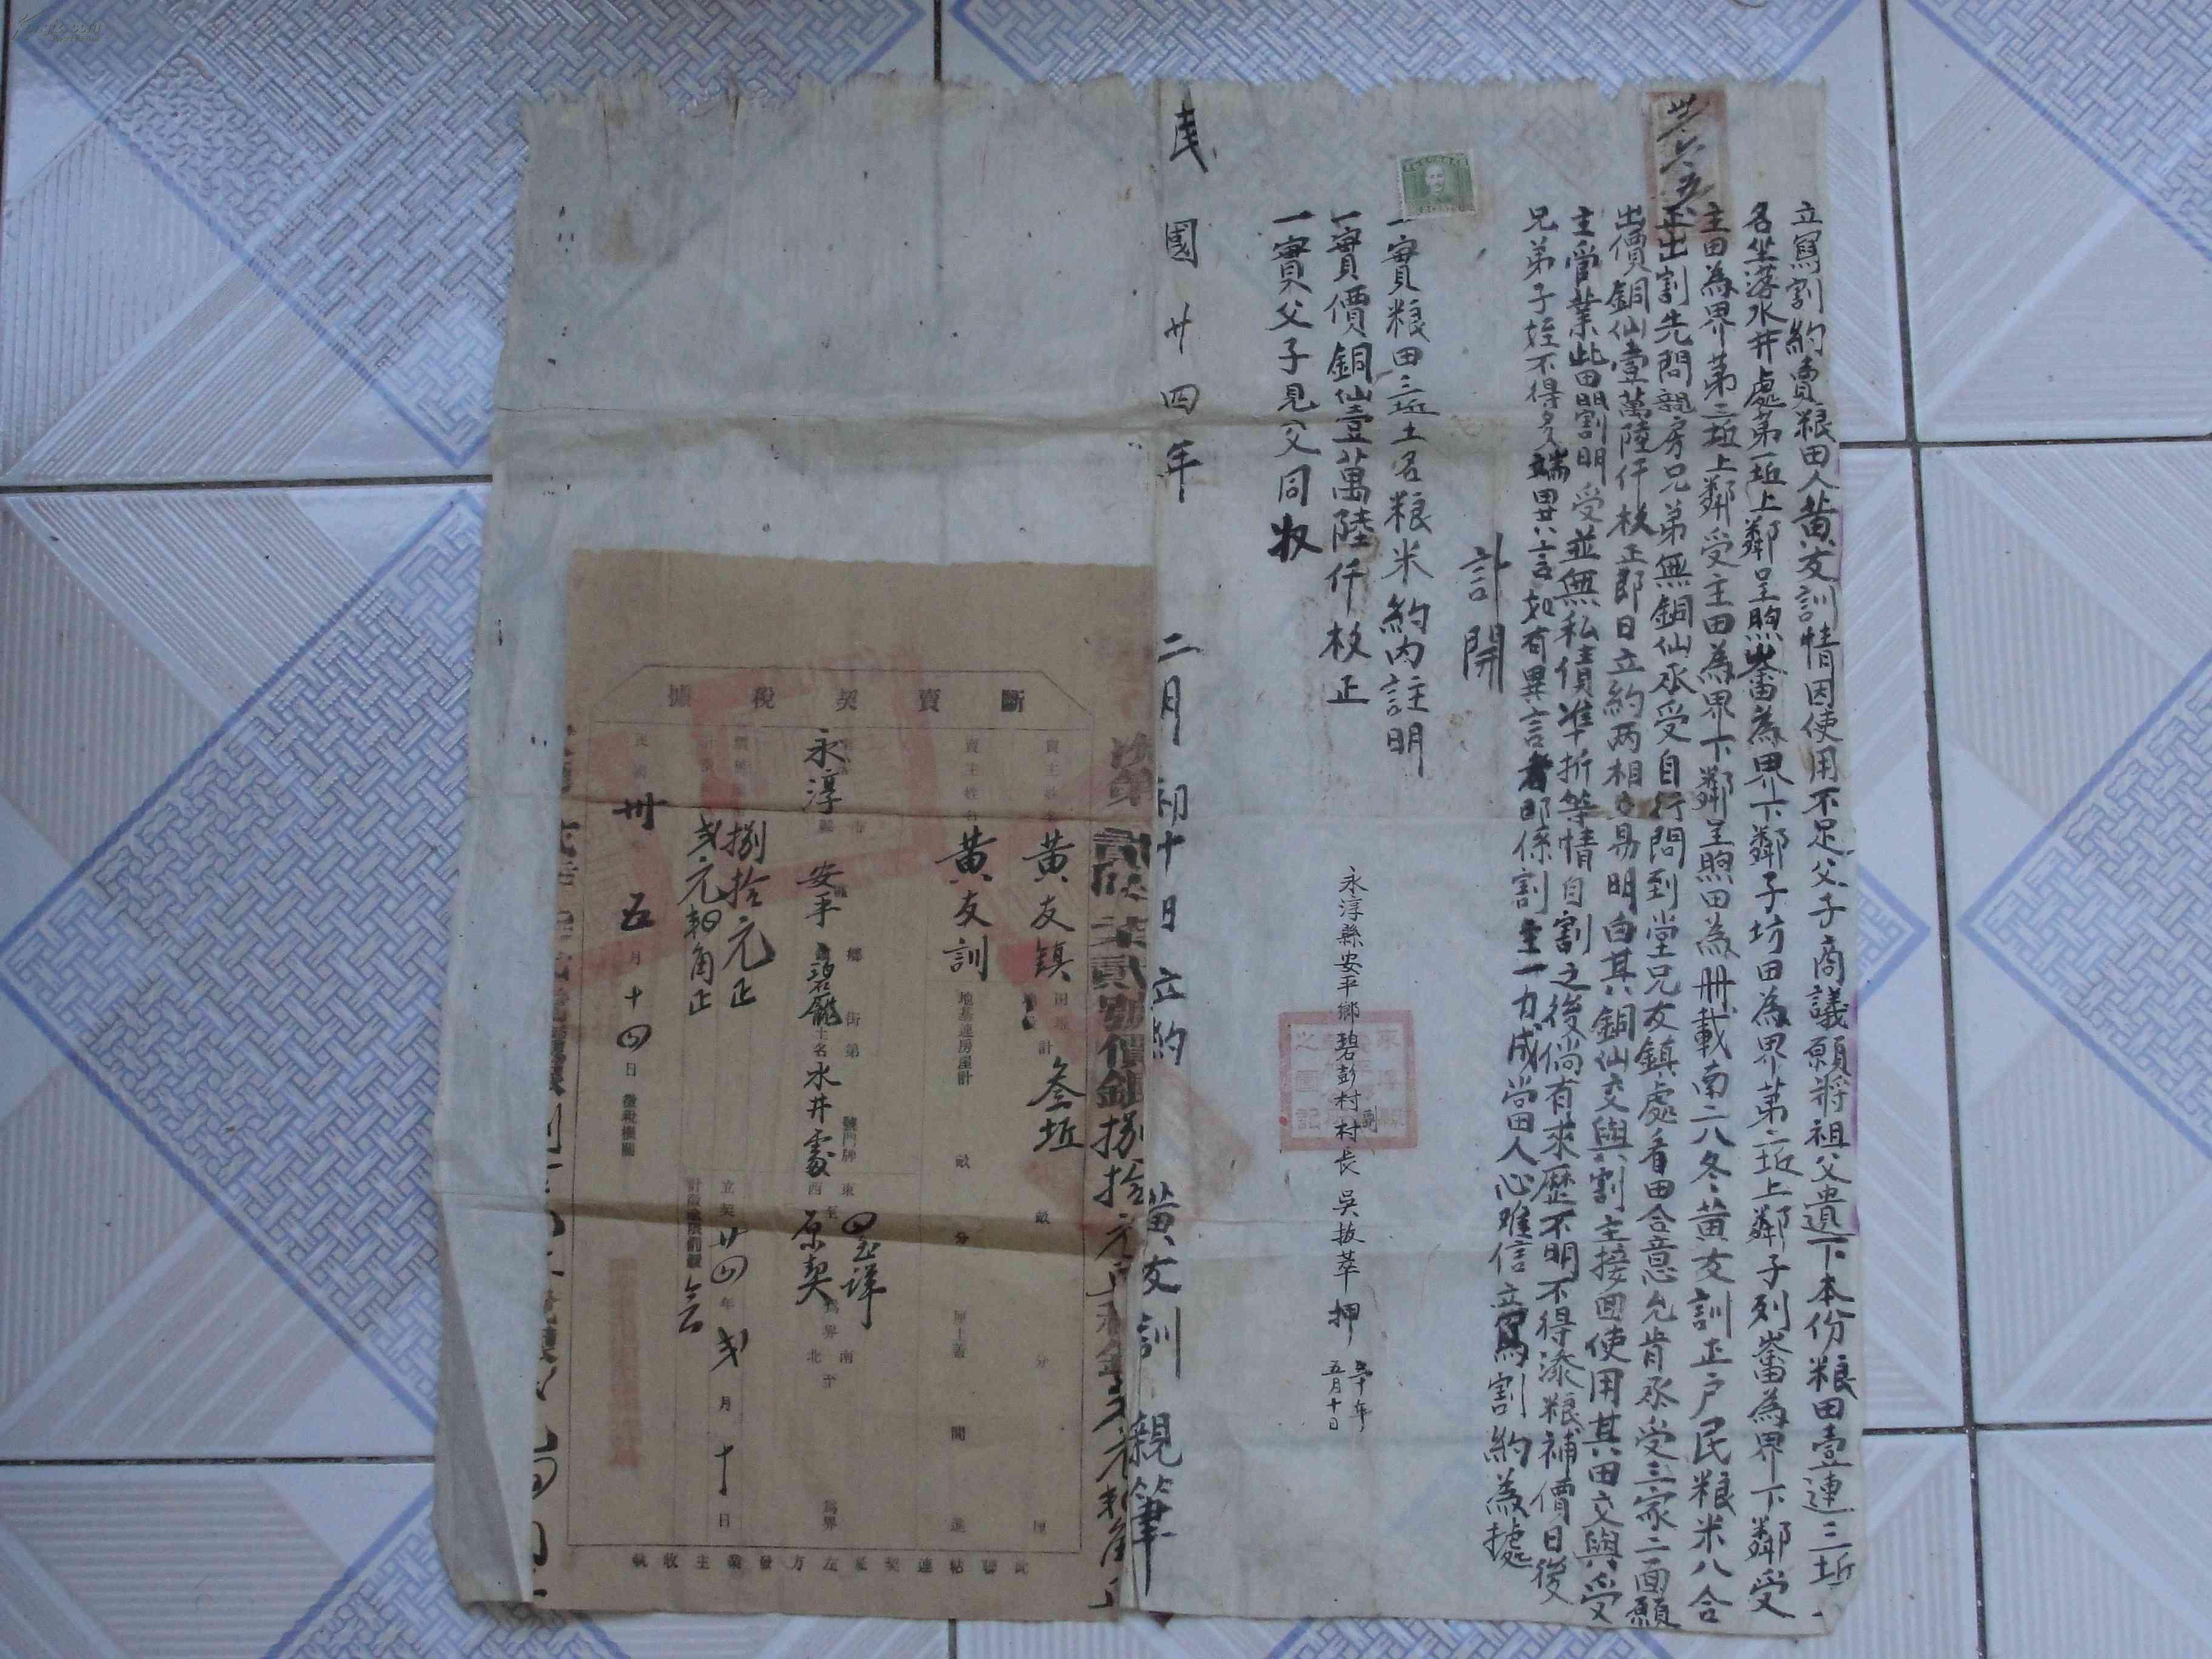 立寫割約賣粮田人黃友訓情因使用不足父子商議願將祖父遺下本份粮田壹連三坵
名坐落水井處第一坵上鄰呈照崙畬為界下鄰子坊田為界第二坵上鄰子列崙畬為界下鄰受
主田為界第三坵上鄰受主田為界下鄰呈照田為界載南二八冬黃友訓正戶民粮米八合
正出割先問親房兄弟無銅仙承受自行問到堂兄友鎮處看田合意允肯承受三家二面願
出價銅仙壹萬陸仟枚正即日立約兩相交易明白其銅仙交與割主接回使用其田交與受
主管業此田割明受並無私債準折等情自割之後倘有來歷不明不得添粮補價日後
兄弟子姪不得多端異言如有異言者即係割主一力成當田人心难信立寫割約為據
計開
一實粮田三坵土名粮米約內註明
一實價銅仙壹萬陸仟枚正
一實父子見交同收
永淳縣安平鄉碧彭村副村長吳拔萃押
五月十日
民國廿四年二月初十日立約 黃友訓親筆
斷賣契稅據
買主姓名 黃友鎮 田 計 叁坵 畝 分 厘
賣主姓名 黃友訓 地基連房屋計 畝 分 厘 土蓋 間 進
永淳縣 市 安平鄉 街第 號門牌 土名水井處 東西至 四至詳原契 為界 南北至 為界
捌拾元正 立契廿四年弍月十日
弍元 角正
民國卅五月十四日 徵稅機關
此聯粘連契紙左方發業主收執